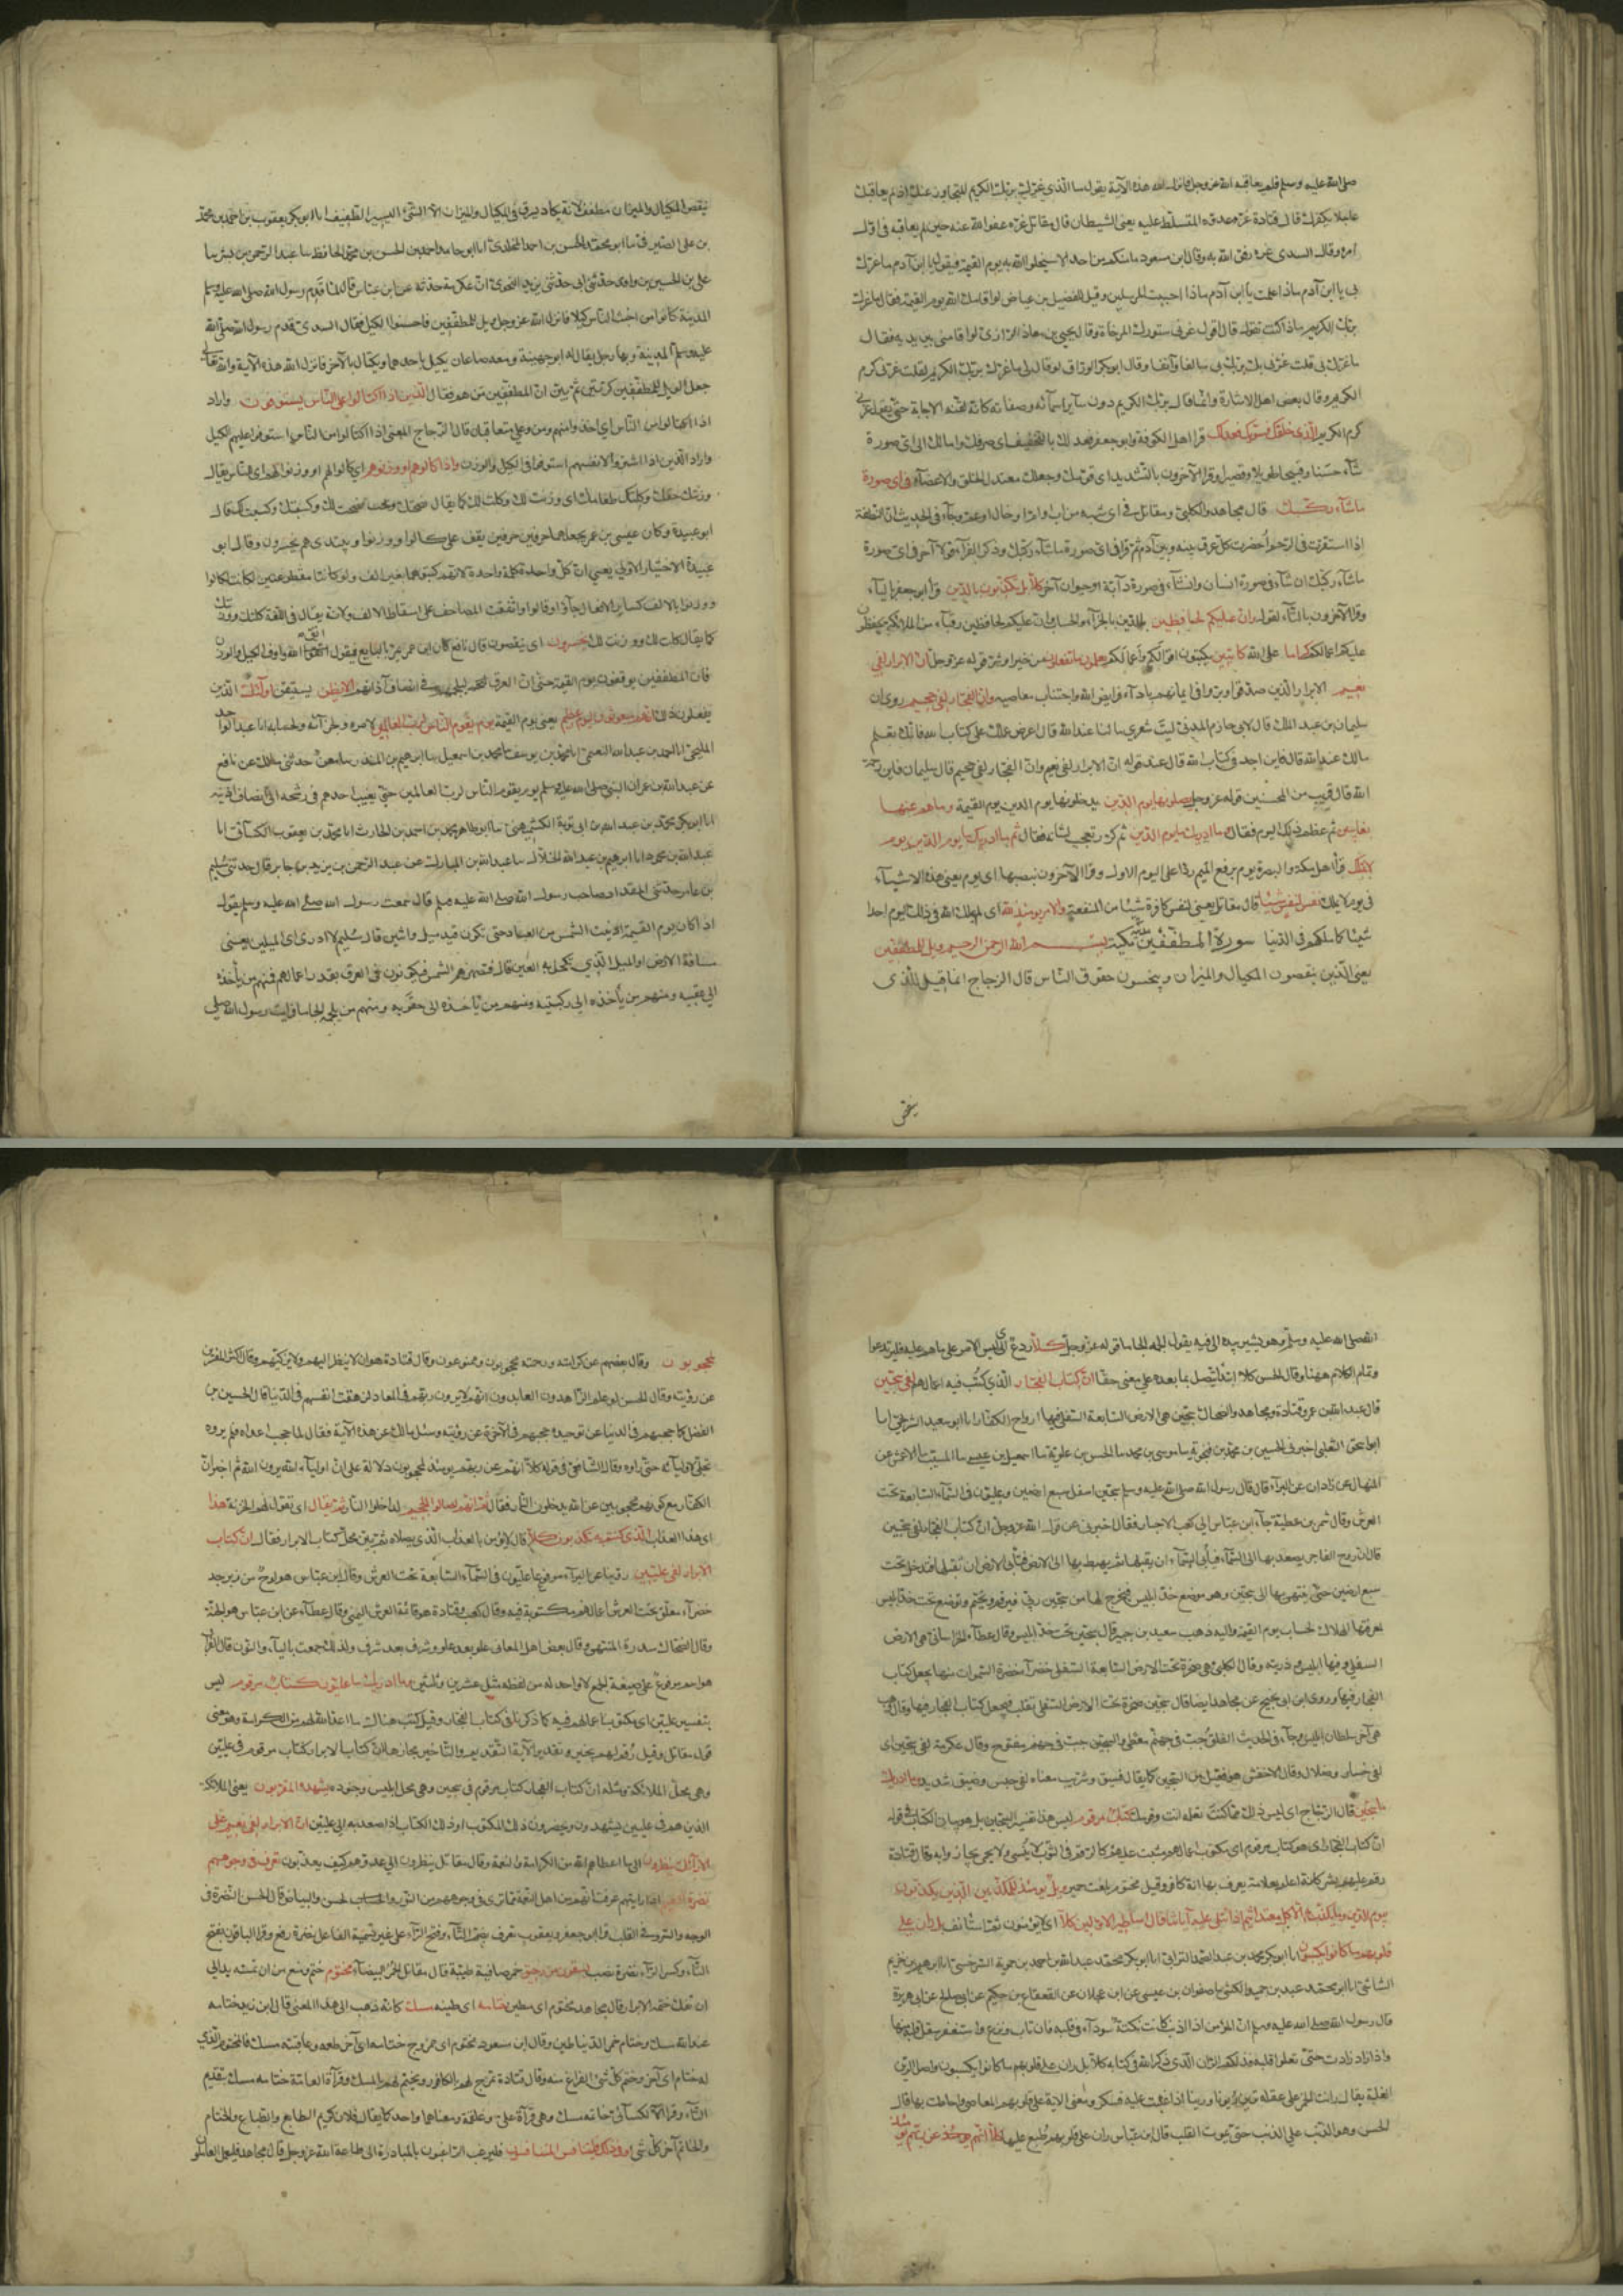 صلى الله عليه وسلم فلم يعاقبه الله عز وجل فانزل الله هذه الآية يقول ما الذي غرك بربك الكريم المتجاوز عنك اذ لم يعاقبك
عاجلا بكفرك قال قتادة غره عدوه المسلط عليه يعني الشيطان قال مقاتل غره عفو الله عنه حين لم يعاقبه في اول
امره وقال السدي غره رفق الله به وقال ابن مسعود ما منكم من احد الا سيخلو الله به يوم القيمة فيقول يا ابن آدم ما غرك
بي يا ابن آدم ماذا عملت يا ابن آدم ماذا اجبت المرسلين وقيل للفضيل بن عياض لو اقامك الله يوم القيمة فقال ما غرك
بربك الكريم ماذا كنت تقول قال اقول غرني ستورك المرخاة وقال يحيى بن معاذ الرازي لو اقامني بين يديه فقال
ما غرك بي قلت غرني بك برك بي سالفا وآنفا وقال ابو بكر الوراق لو قال لي ما غرك بربك الكريم لقلت غرني كرم
الكريم وقال بعض اهل الاشارة وانما قال بربك الكريم دون ساير اسمائه وصفاته كانه لقنه الاجابة حتى يقول غرني
كرم الكريم الذي خلقك فسويك فعدلك قرا اهل الكوفة وابو جعفر فعدلك بالتخفيف اي صرفك وامالك الى اي صورة
شآء حسنا وقبيحا طويلا وقصيرا وقرا الآخرون بالتشديد اي قومك وجعلك معتدل الخلق والاعضآء في اي صورة
ما شآء ركبك قال مجاهد والكلبي ومقاتل في اي شبه من اب او ام او خال او عم وجآء في الحديث ان النطفة
اذا استقرت في الرحم احضرت كل عرق بينه وبين آدم ثم قرا في اي صورة ما شآء ركبك وذكر الفرآء قولا آخر في اي صورة
ما شآء ركبك ان شآء في صورة انسان وان شآء في صورة دآبة او حيوان آخر كلا بل تكذبون بالدين قرا ابو جعفر باليآء
وقرا الآخرون بالتآء لقوله وان عليكم لحافظين بالدين بالجزآء والحساب وان عليكم لحافظين رقبآء من الملائكة يحفظون
عليكم اعمالكم كراما على الله كاتبين يكتبون اقوالكم واعمالكم يعلمون ما تفعلون من خير او شر قوله عز وجل ان الابرار لفي
نعيم الابرار الذين صدقوا وبروا في ايمانهم بادآء فرايض الله واجتناب معاصيه وان الفجار لفي جحيم روي ان
سليمان بن عبد الملك قال لابي حازم المدني ليت شعري ما لنا عند الله قال اعرض عملك على كتاب الله فانك تعلم
مالك عند الله قال فاين اجد في كتاب الله قال عند قوله ان الابرار لفي نعيم وان الفجار لفي جحيم قال سليمان فاين رحمة
الله قال قريب من المحسنين قوله عز وجل يصلونها يوم الدين يدخلونها يوم الدين يوم القيمة وما هم عنها
بغايبين ثم عظم ذلك اليوم فقال وما ادريك ما يوم الدين ثم كرر تعجبا لشانه فقال ثم ما ادريك ما يوم الدين يوم
لا تملك قرأ اهل مكة والبصرة يوم برفع الميم ردا على اليوم الاول وقرا الآخرون بنصبها اي يوم يعني هذه الاشيآء
في يوم لا تملك نفس لنفس شيئا قال مقاتل يعني لنفس كافرة شيئا من المنفعة والامر يومئذ لله اي لم يملك الله في ذلك اليوم احدا
شيئا كما ملكهم في الدنيا سورة المطففين مكية بسم الله الرحمن الرحيم ويل للمطففين
يعني الذين ينقصون المكيال والميزان ويبخسون حقوق الناس قال الزجاج انما قيل للذي
ينقص
ينقص المكيال والميزان مطفف لانه لا يكاد يسرق في المكيال والميزان الا الشئ اليسير الطفيف انا ابو بكر يعقوب بن احمد بن محمد
بن علي الصيرفي ما ابو محمد الحسن بن احمد المخلدي انا ابو حامد احمد بن الحسن بن محمد الحافظ سا عبد الرحمن بن بشر سا
علي بن الحسين بن واقد حدثني ابي حدثني يزيد النحوي ان عكرمة حدثه عن ابن عباس قال لما قدم رسول الله صلى الله عليه وسلم
المدينة كانوا من اخبث الناس كيلا فانزل الله عز وجل ويل للمطففين فاحسنوا الكيل فقال السدي قدم رسول الله صلى الله
عليه وسلم المدينة وبها رجل يقال له ابو جهينة ومعه صاعان يكيل باحدهما ويكتال بالآخر فانزل الله هذه الآية والله تعالى
جعل الويل للمطففين ثم بين ان المطففين من هم فقال الذين اذا اكتالوا على الناس يستوفون واراد
اذا اكتالوا من الناس اي اخذوا منهم ومن وعلى متعاقبان قال الزجاج المعنى اذا اكتالوا من الناس استوفوا عليهم الكيل
واراد الذين اذا اشتروا لانفسهم استوفوا في الكيل والوزن واذا كالوهم او وزنوهم اي كالوا لهم او وزنوا لهم اي للناس يقال
وزنتك حقك وكلتك طعامك اي وزنت لك وكلت لك كما يقال نصحتك ونصحت لك وكسبتك وكسبت لك قال
ابو عبيدة وكان عيسى بن عمر يجعلهما حرفين حرفين يقف على كالوا ووزنوا ويبتدي هم يخسرون وقال ابو
عبيدة الاختيار الاول يعني ان كل واحدة كلمة واحدة لانهم كتبوهما بغير الف ولو كانتا مقطوعتين لكانتا كالوا
ووزنوا بالالف كساير الافعال جآؤا وقالوا واتفقت المصاحف على اسقاط الالف ولانه يقال في اللغة كلتك ووزنتك
كما يقال كلت لك ووزنت لك يخسرون اي ينقصون قال نافع كان ابن عمر يمر بالبايع فيقول اتق الله واوف الكيل والوزن
فان المطففين يوقفون يوم القيمة حتى ان العرق ليلجمهم في انصاف آذانهم الا يظن يستيقن اولئك الذين
يفعلون ذلك انهم مبعوثون ليوم عظيم يعني يوم القيمة يوم يقوم الناس لرب العالمين لامره ولجزآئه ولحسابه انا عبد الواحد
المليحي انا احمد بن عبد الله النعيمي انا محمد بن يوسف سا محمد بن اسمعيل سا ابراهيم بن المنذر سا معن حدثني مالك عن نافع
عن عبد الله بن عمر ان النبي صلى الله عليه وسلم يوم يقوم الناس لرب العالمين حتى يغيب احدهم في رشحه الى انصاف اذنيه
انا ابو بكر محمد بن عبد الله بن ابي توبة الكشميهني سا ابو طاهر محمد بن احمد بن الحارث انا محمد بن يعقوب الكسائي انا
عبد الله بن محمود انا ابراهيم بن عبد الله الخلال سا عبد الله بن المبارك عن عبد الرحمن بن يزيد بن جابر قال حدثني سليم
بن عامر حدثني المقداد صاحب رسول الله صلى الله عليه وسلم قال سمعت رسول الله صلى الله عليه وسلم يقول
اذا كان يوم القيمة ادنيت الشمس من العباد حتى تكون قيد ميل او اثنين قال سليم لا ادري اي الميلين يعني
مسافة الارض او الميل الذي تكحل به العين قال فتصهرهم الشمس فيكونون في العرق بقدر اعمالهم فمنهم من يأخذه
الى عقبيه ومنهم من يأخذه الى ركبتيه ومنهم من يأخذه الى حقويه ومنهم من يلجمه الجاما فرايت رسول الله صلى
الله صلى الله عليه وسلم وهو يشير بيده الى فيه يقول يلجمه الجاما قوله عز وجل كلا ردع اي ليس الامر على ما هم عليه فليرتدعوا
وتمام الكلام ههنا وقال الحسن كلا ابتدآء يتصل بما بعده على معنى حقا ان كتاب الفجار الذي كتب فيه اعمالهم لفي سجين
قال عبد الله بن عمرو وقتادة ومجاهد والضحاك سجين هي الارض السابعة السفلى فيها ارواح الكفار انا ابو سعيد الشريحي انا
ابو اسحق الثعلبي اخبرني الحسين بن محمد بن فنجويه سا موسى بن محمد سا الحسن بن علويه سا اسمعيل بن عيسى سا المسيب سا الاعمش عن
المنهال عن زاذان عن البرآء قال قال رسول الله صلى الله عليه وسلم سجين اسفل سبع ارضين وعليون في السمآء السابعة تحت
العرش وقال شمر بن عطية جآء ابن عباس الى كعب الاحبار فقال اخبرني عن قول الله عز وجل ان كتاب الفجار لفي سجين
قال ان روح الفاجر يصعد بها الى السمآء فتأبى السمآء ان تقبلها ثم يهبط بها الى الارض فتأبى الارض ان تقبلها فتدخل تحت
سبع ارضين حتى ينتهي بها الى سجين وهو موضع خد ابليس فيخرج لها من سجين رق فيرقم ويختم ويوضع تحت خد ابليس
لمعرفتها الهلاك لحساب يوم القيمة واليه ذهب سعيد بن جبير قال سجين تحت خد ابليس وقال عطآء الخراساني هي الارض
السفلى وفيها ابليس وذريته وقال الكلبي هي صخرة تحت الارض السابعة السفلى خضرآء خضرة السموات منها يجعل كتاب
الفجار فيها وروى ابن ابي نجيح عن مجاهد ايضا قال سجين صخرة تحت الارض السفلى تقلب فيجعل كتاب الفجار فيها وقال وهب
هي آخر سلطان ابليس وجآء في الحديث الفلق جب في جهنم مغطى والسجين جب في جهنم مفتوح وقال عكرمة لفي سجين اي
لفي خسار وضلال وقال الاخفش هو فعيل من السجن كما يقال فسيق وشريب معناه لفي حبس وضيق شديد وما ادريك
ما سجين قال الزجاج اي ليس ذلك مما كنت تعلمه انت وقومك كتاب مرقوم ليس هذا تفسير السجين بل هو بيان الكتاب في قوله
ان كتاب الفجار اي هو كتاب مرقوم اي مكتوب اعمالهم مثبت عليهم كالرقم في الثوب لا ينسى ولا يمحى حتى يجازوا به وقال قتادة
رقم عليهم بشر كانه اعلم بعلامة يعرف بها انه كافر وقيل مختوم بلغة حمير ويل يومئذ للمكذبين الذين يكذبون
بيوم الدين وما يكذب به الا كل معتد اثيم اذا تتلى عليه آياتنا قال اساطير الاولين كلا اي لا يؤمنون ثم استأنف بل ران على
قلوبهم ما كانوا يكسبون انا ابو بكر محمد بن عبد الصمد الترابي انا ابو بكر محمد عبد الله بن احمد بن حمويه السرخسي انا ابراهيم بن خزيم
الشاشي انا ابو محمد عبد بن حميد الكشي سا صفوان بن عيسى عن ابن عجلان عن القعقاع بن حكيم عن ابي صالح عن ابي هريرة
قال رسول الله صلى الله عليه وسلم ان المؤمن اذا اذنب كانت نكتة سودآء في قلبه فان تاب ونزع واستغفر صقل قلبه منها
واذا زاد زادت حتى تعلو قلبه فذلكم الران الذي ذكر الله في كتابه كلا بل ران على قلوبهم ما كانوا يكسبون واصل الرين
الغلبة يقال رانت الخمر على عقله ترين رينا وريونا اذا غلبت عليه فسكر ومعنى الاية غلبت على قلوبهم المعاصي واحاطت بها قال
الحسن وهو الذنب على الذنب حتى يموت القلب قال ابن عباس ران على قلوبهم طبع عليها كلا انهم عن ربهم يومئذ
لمحجوبون وقال بعضهم عن كرامته ورحمته محجوبون وممنوعون وقال قتادة هو ان لا ينظر اليهم ولا يزكيهم وقال اكثر المفسرين
عن رؤيته وقال الحسن لو علم الزاهدون العابدون انهم لا يرون ربهم في المعاد لزهقت انفسهم في الدنيا قال الحسين بن
الفضل كما حجبهم في الدنيا عن توحيده حجبهم في الآخرة عن رؤيته وسئل مالك عن هذه الآية فقال لما حجب اعداه فلم يروه
تجلى لاوليآئه حتى راوه وقال الشافعي في قوله كلا انهم عن ربهم يومئذ لمحجوبون دلالة على ان اوليآء الله يرون الله ثم اخبر ان
الكفار مع كونهم محجوبين عن الله يدخلون النار فقال ثم انهم لصالوا الجحيم لداخلوا النار ثم يقال اي تقول لهم الخزنة هذا
اي هذا العذاب الذي كنتم به تكذبون كلا قال لا يؤمن بالعذاب الذي يصلاه ثم بين محل كتاب الابرار فقال ان كتاب
الابرار لفي عليين روينا عن البرآء مرفوعا عليون في السمآء السابعة تحت العرش وقال ابن عباس هو لوح من زبرجد
خضرآء معلق تحت العرش اعمالهم مكتوبة فيه وقال كعب وقتادة هو قائمة العرش اليمنى وقال عطآء عن ابن عباس هو الجنة
وقال الضحاك سدرة المنتهى وقال بعض اهل المعاني علو بعد علو وشرف بعد شرف ولذلك جمعت باليآء والنون قال الفرآء
هو اسم موضوع على صيغة الجمع لا واحد له من لفظه مثل عشرين وثلثين وما ادريك ما عليون كتاب مرقوم ليس
بتفسير عليين اي مكتوب اعمالهم فيه كما ذكرنا في كتاب الفجار وقيل كتب هناك ما اعد الله لهم من الكرامة وهو معنى
قول مقاتل وقيل رقم لهم بخير وتقدير الآية التقديم والتاخير مجازها ان كتاب الابرار كتاب مرقوم في عليين
وهي محل الملائكة ومثله ان كتاب الفجار كتاب مرقوم في سجين وهي محل ابليس وجنوده يشهده المقربون يعني الملائكة
الذين هم في عليين يشهدون ويحضرون ذلك المكتوب او ذلك الكتاب اذا صعد به الى عليين ان الابرار لفي نعيم على
الارآئك ينظرون الى ما اعطاهم الله من الكرامة والنعمة وقال مقاتل ينظرون الى عدوهم كيف يعذبون تعرف في وجوههم
نضرة النعيم اذا رايتهم عرفت انهم من اهل النعمة مما ترى في وجوههم من النور والحسن والبياض قال الحسن النضرة في
الوجه والسرور في القلب قرا ابو جعفر ويعقوب تعرف بضم التآء وفتح الرآء على غير تسمية الفاعل نضرة رفع وقرا الباقون بفتح
التآء وكسر الرآء نضرة نصب يسقون من رحيق خمر صافية طيبة قال مقاتل الخمر البيضآء مختوم ختم ومنع من ان تمسه يد الى
ان يفك ختمه الابرار قال مجاهد مختوم اي مطين ختامه اي طينه مسك كانه ذهب الى هذا المعنى قال ابن زيد ختامه
عند الله مسك وختام خمر الدنيا طين وقال ابن مسعود مختوم اي ممزوج ختامه اي آخر طعمه وعاقبته مسك فالمختوم الذي
له ختام اي آخر وختم كل شئ الفراغ منه وقال قتادة تمزج لهم بالكافور ويختم لهم بالمسك وقرآءة العامة ختامه مسك بتقديم
التآء وقرا الكسآئي خاتمه مسك وهي قرآءة علي وعلقمة ومعناهما واحد كما يقال فلان كريم الطابع والطباع والختام
والخاتم آخر كل شئ وفي ذلك فليتنافس المتنافسون فليرغب الراغبون بالمبادرة الى طاعة الله عز وجل قال مجاهد فليعمل العاملون